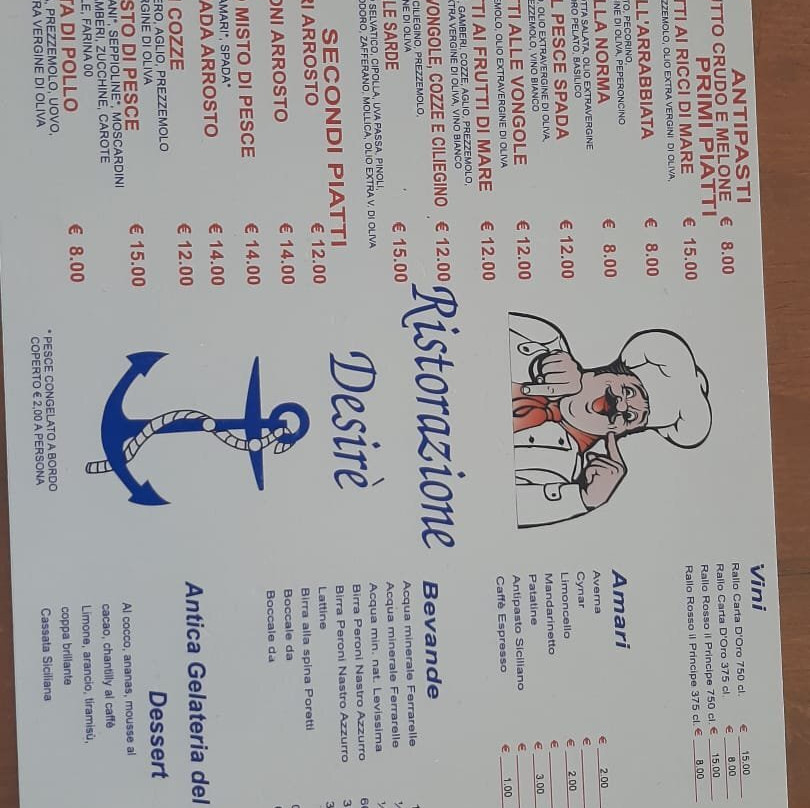 ANTIPASTI
CRUDO E MELONE € 8.00
PRIMI PIATTI
AI RICCI DI MARE € 15.00
EZZEMOLO, OLIO EXTRA VERGINE DI OLIVA,
L'ARRABBIATA € 8.00
PECORINO,
DI OLIVA, PEPERONCINO
LLA NORMA € 8.00
SALATA, OLIO EXTRAVERGINE
PELATO, BASILICO
PESCE SPADA € 12.00
OLIO EXTRAVERGINE DI OLIVA,
EZZEMOLO, VINO BIANCO
TI ALLE VONGOLE € 12.00
OLIO EXTRAVERGINE DI OLIVA
TI AI FRUTTI DI MARE € 12.00
GAMBERI, COZZE, AGLIO, PREZZEMOLO,
VERGINE DI OLIVA, VINO BIANCO
VONGOLE, COZZE E CILIEGINO € 12.00
CILIEGINO, PREZZEMOLO,
DI OLIVA
LE SARDE € 15.00
SELVATICO, CIPOLLA, UVA PASSA, PINOLI,
ZAFFERANO, MOLLICA, OLIO EXTRA V. DI OLIVA
SECONDI PIATTI
RI ARROSTO € 12.00
ONI ARROSTO € 14.00
MISTO DI PESCE € 14.00
AMARI*, SPADA*
ADA ARROSTO € 14.00
COZZE € 12.00
ERO, AGLIO, PREZZEMOLO
RGINE DI OLIVA
STO DI PESCE € 15.00
ANI*, SEPPIOLINE*, MOSCARDINI
MBERI, ZUCCHINE, CAROTE
E, FARINA 00
TA DI POLLO € 8.00
PREZZEMOLO, UOVO,
TRA VERGINE DI OLIVA
Ristorazione
Desirè
* PESCE CONGELATO A BORDO
COPERTO € 2,00 A PERSONA
Vini
Rallo Carta D'Oro 750 cl. € 15.00
Rallo Carta D'Oro 375 cl. € 8.00
Rallo Rosso il Principe 750 cl. € 15.00
Rallo Rosso il Principe 375 cl. € 8.00
Amari
Averna € 2.00
Cynar €
Limoncello € 2.00
Mandarinetto €
Patatine € 3.00
Antipasto Siciliano €
Caffè Espresso € 1.00
Bevande
Acqua minerale Ferrarelle
Acqua minerale Ferrarelle
Acqua min. nat. Levissima
Birra Peroni Nastro Azzurro
Birra Peroni Nastro Azzurro
Lattine
Birra alla spina Poretti
Boccale da
Boccale da
Antica Gelateria del
Dessert
Al cocco, ananas, mousse al
cacao, chantilly al caffè
Limone, arancio, tiramisù,
coppa brillante
Cassata Siciliana